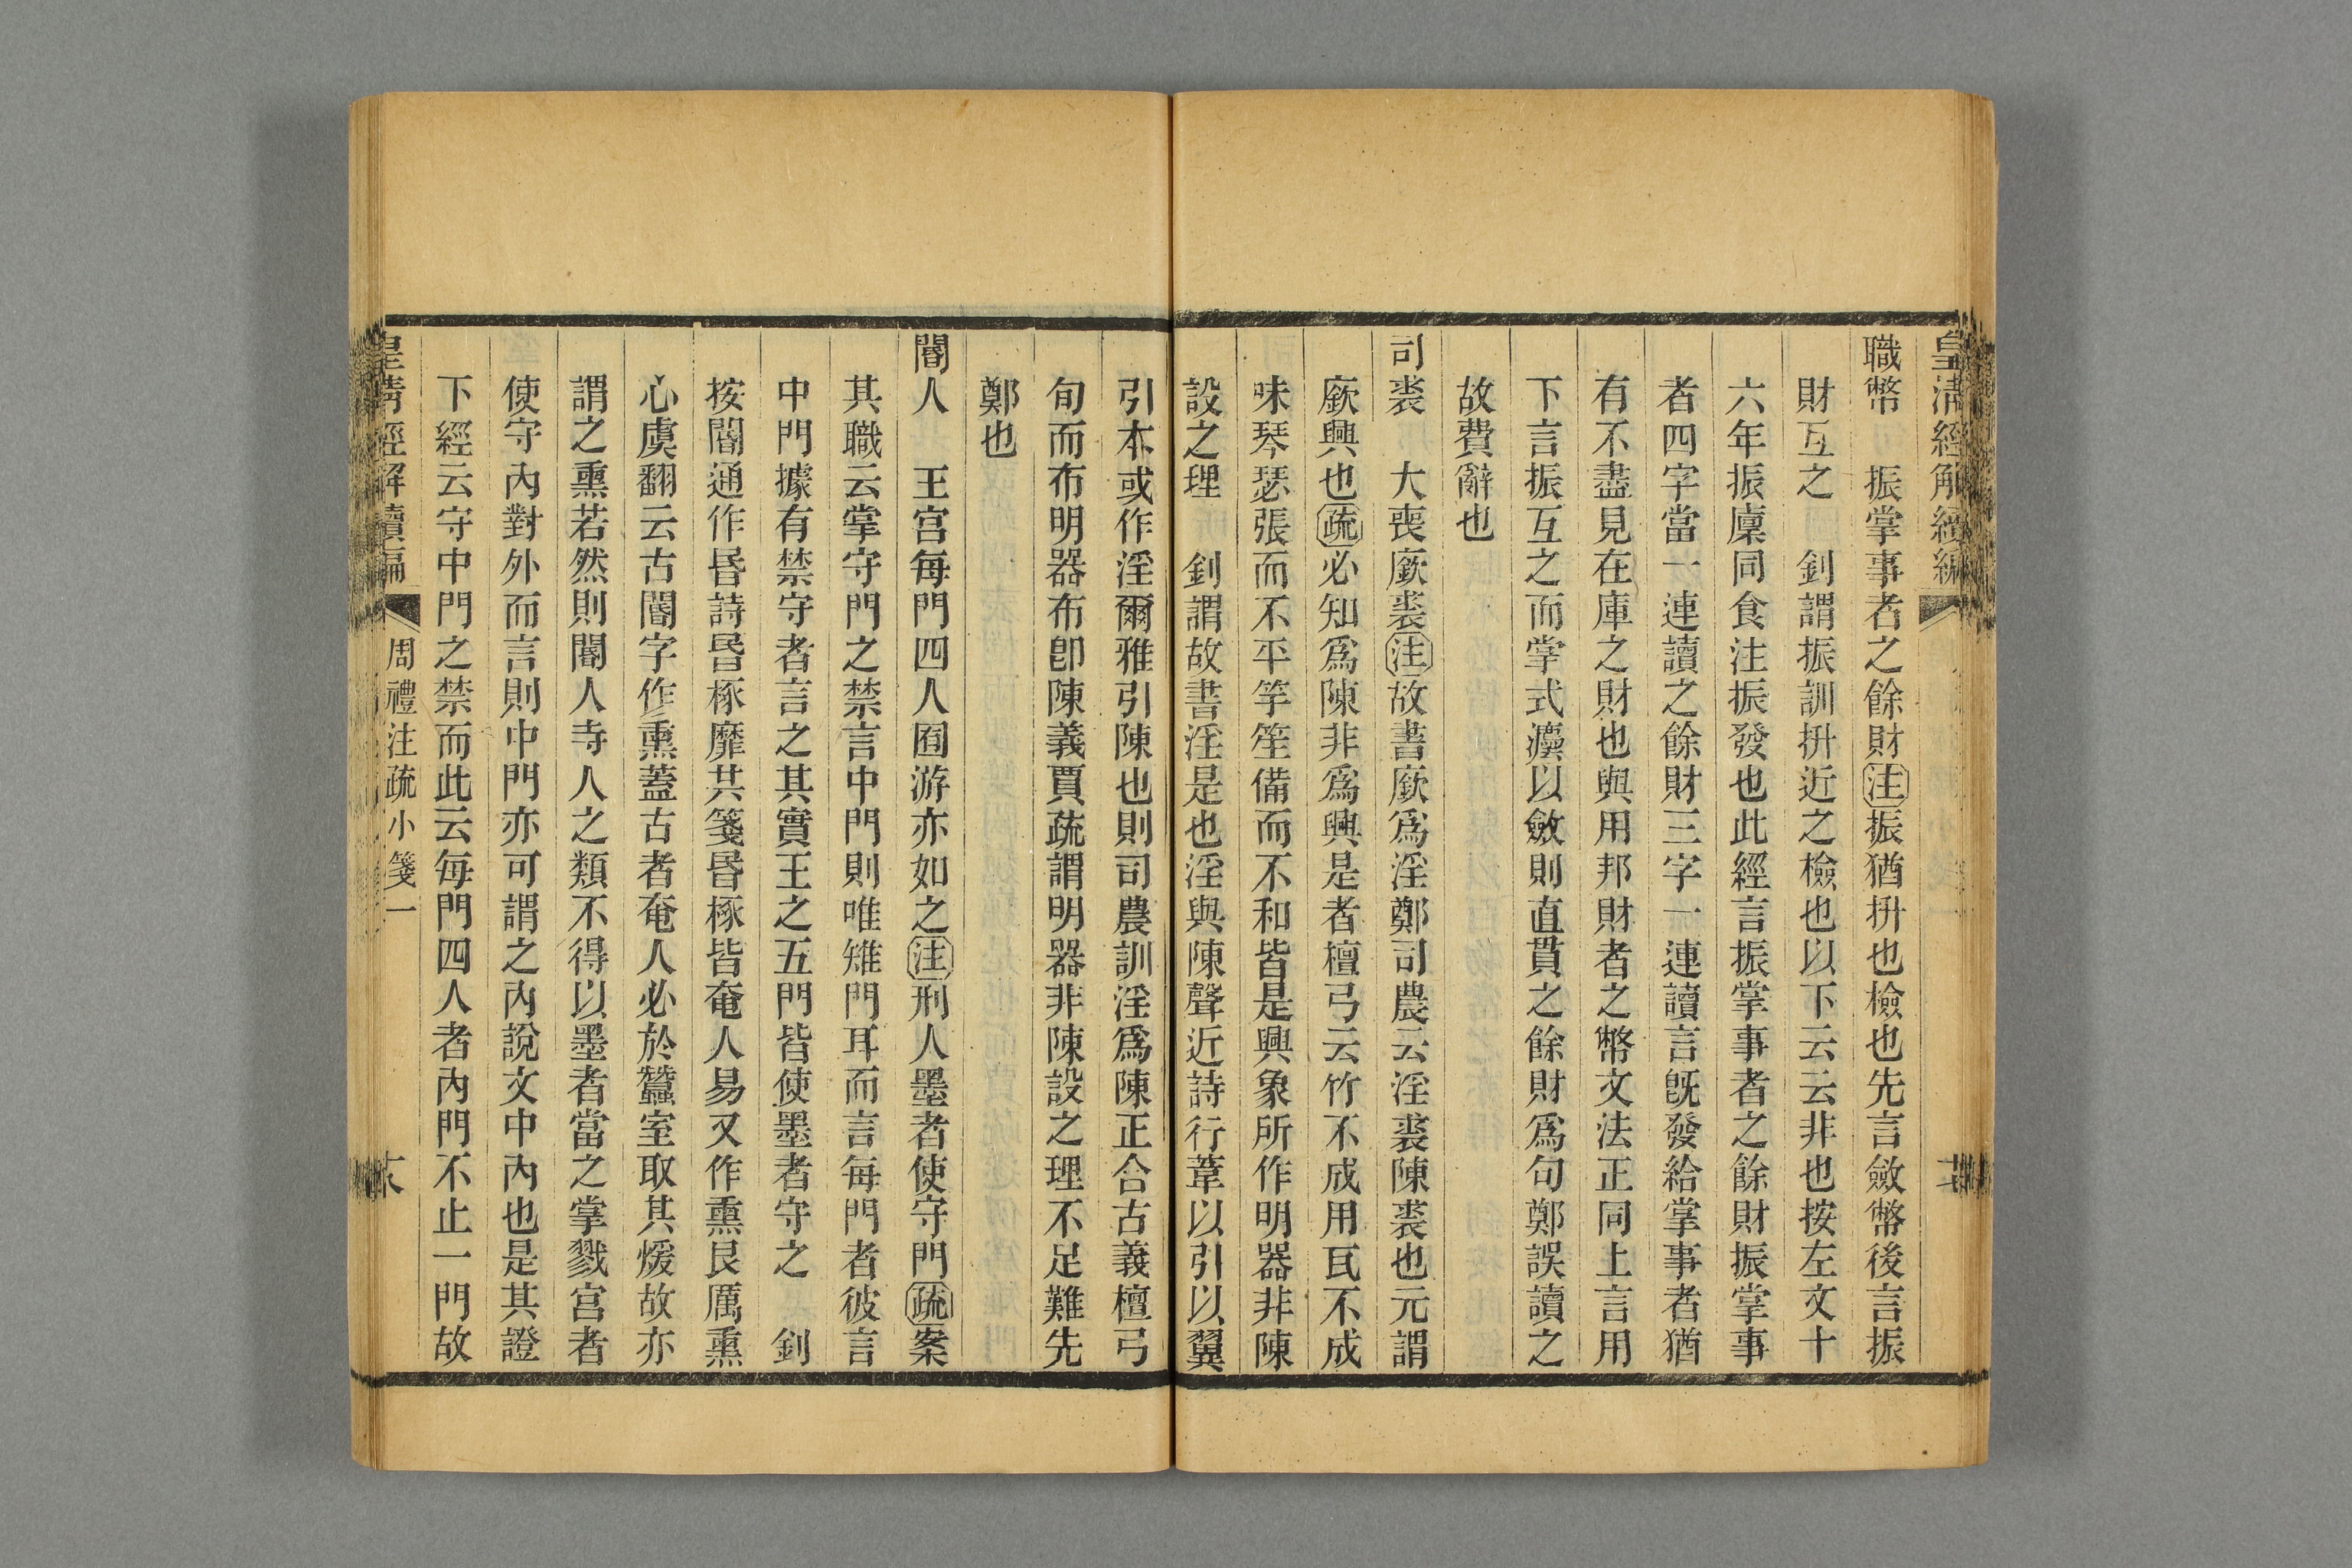 皇清經解續編
職幣　振掌事者之餘財注振猶拚也檢也先言斂幣後言振
財互之　釗謂振訓拚近之檢也以下云云非也按左文十
六年振廩同食注振發也此經言振掌事者之餘財振掌事
者四字當一連讀之餘財三字一連讀言旣發給掌事者猶
有不盡見在庫之財也與用邦財者之幣文法正同上言用
下言振互之而掌式灋以斂則直貫之餘財爲句鄭誤讀之
故費辭也
司裘　大喪廞裘注故書廞爲淫鄭司農云淫裘陳裘也元謂
廞興也疏必知爲陳非爲興是者檀弓云竹不成用瓦不成
味琴瑟張而不平竽笙備而不和皆是興象所作明器非陳
設之理　釗謂故書淫是也淫與陳聲近詩行葦以引以翼
引本或作淫爾雅引陳也則司農訓淫爲陳正合古義檀弓
旬而布明器布卽陳義賈疏謂明器非陳設之理不足難先
鄭也
閽人　王宮每門四人囿游亦如之注刑人墨者使守門疏案
其職云掌守門之禁言中門則唯雉門耳而言每門者彼言
中門據有禁守者言之其實王之五門皆使墨者守之　釗
按閽通作昬詩昬椓靡共箋昬椓皆奄人易又作熏艮厲熏
心虞翻云古閽字作熏蓋古者奄人必於蠶室取其煖故亦
謂之熏若然則閽人寺人之類不得以墨者當之掌戮宮者
使守內對外而言則中門亦可謂之內說文中內也是其證
下經云守中門之禁而此云每門四人者內門不止一門故
皇清經解續編
周禮注疏小箋一